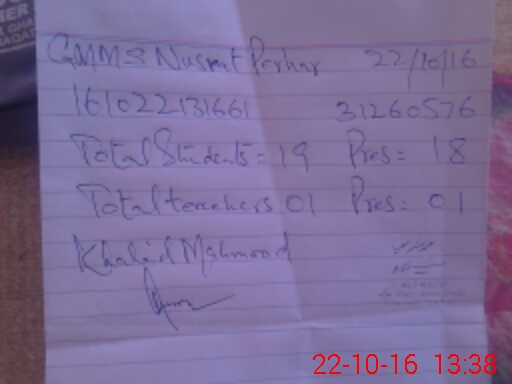 GMMS Nusrat Porhar 22/10/16
161022131661 31260576
Total Students = 19 Pres = 18
Total teachers 01 Pres: 01
Khalid Mahmood
22-10-16 13:38